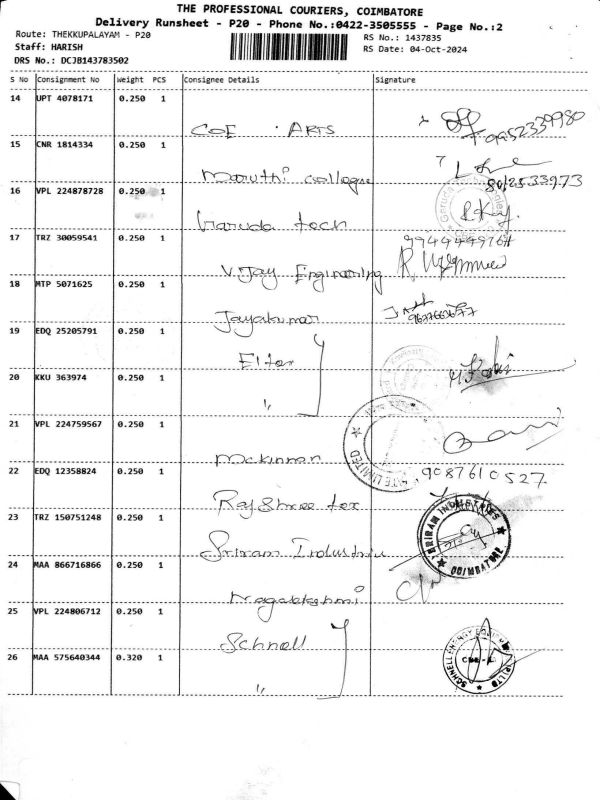 THE PROFESSIONAL COURIERS, COIMBATORE
Delivery Runsheet - P20 - Phone No.:0422-3505555 - Page No.:2
Route: THEKKUPALAYAM - P20
RS No.: 1437835
Staff: HARISH
RS Date: 04-Oct-2024
DRS No.: DCJB143783502
S No Consignment No Weight PCS Consignee Details Signature
14 UPT 4078171 0.250 1
COE . ARTS
9952339980
15 CNR 1814334 0.250 1
Maruthi college
16 VPL 224878728 0.250 1
Garuda tech
17 TRZ 30059541 0.250 1
Vijay Engineering
18 MTP 5071625 0.250 1
Jayakumar
19 EDQ 25205791 0.250 1
Eltex
20 KKU 363974 0.250 1
"
21 VPL 224759567 0.250 1
Mckinnon
22 EDQ 12358824 0.250 1
9087610527
Rajshree tex
23 TRZ 150751248 0.250 1
SRIRAM INDUSTRIES
COIMBATORE
Sriram Industries
24 MAA 866716866 0.250 1
Nagalakshmi
25 VPL 224806712 0.250 1
Schnell
26 MAA 575640344 0.320 1
"